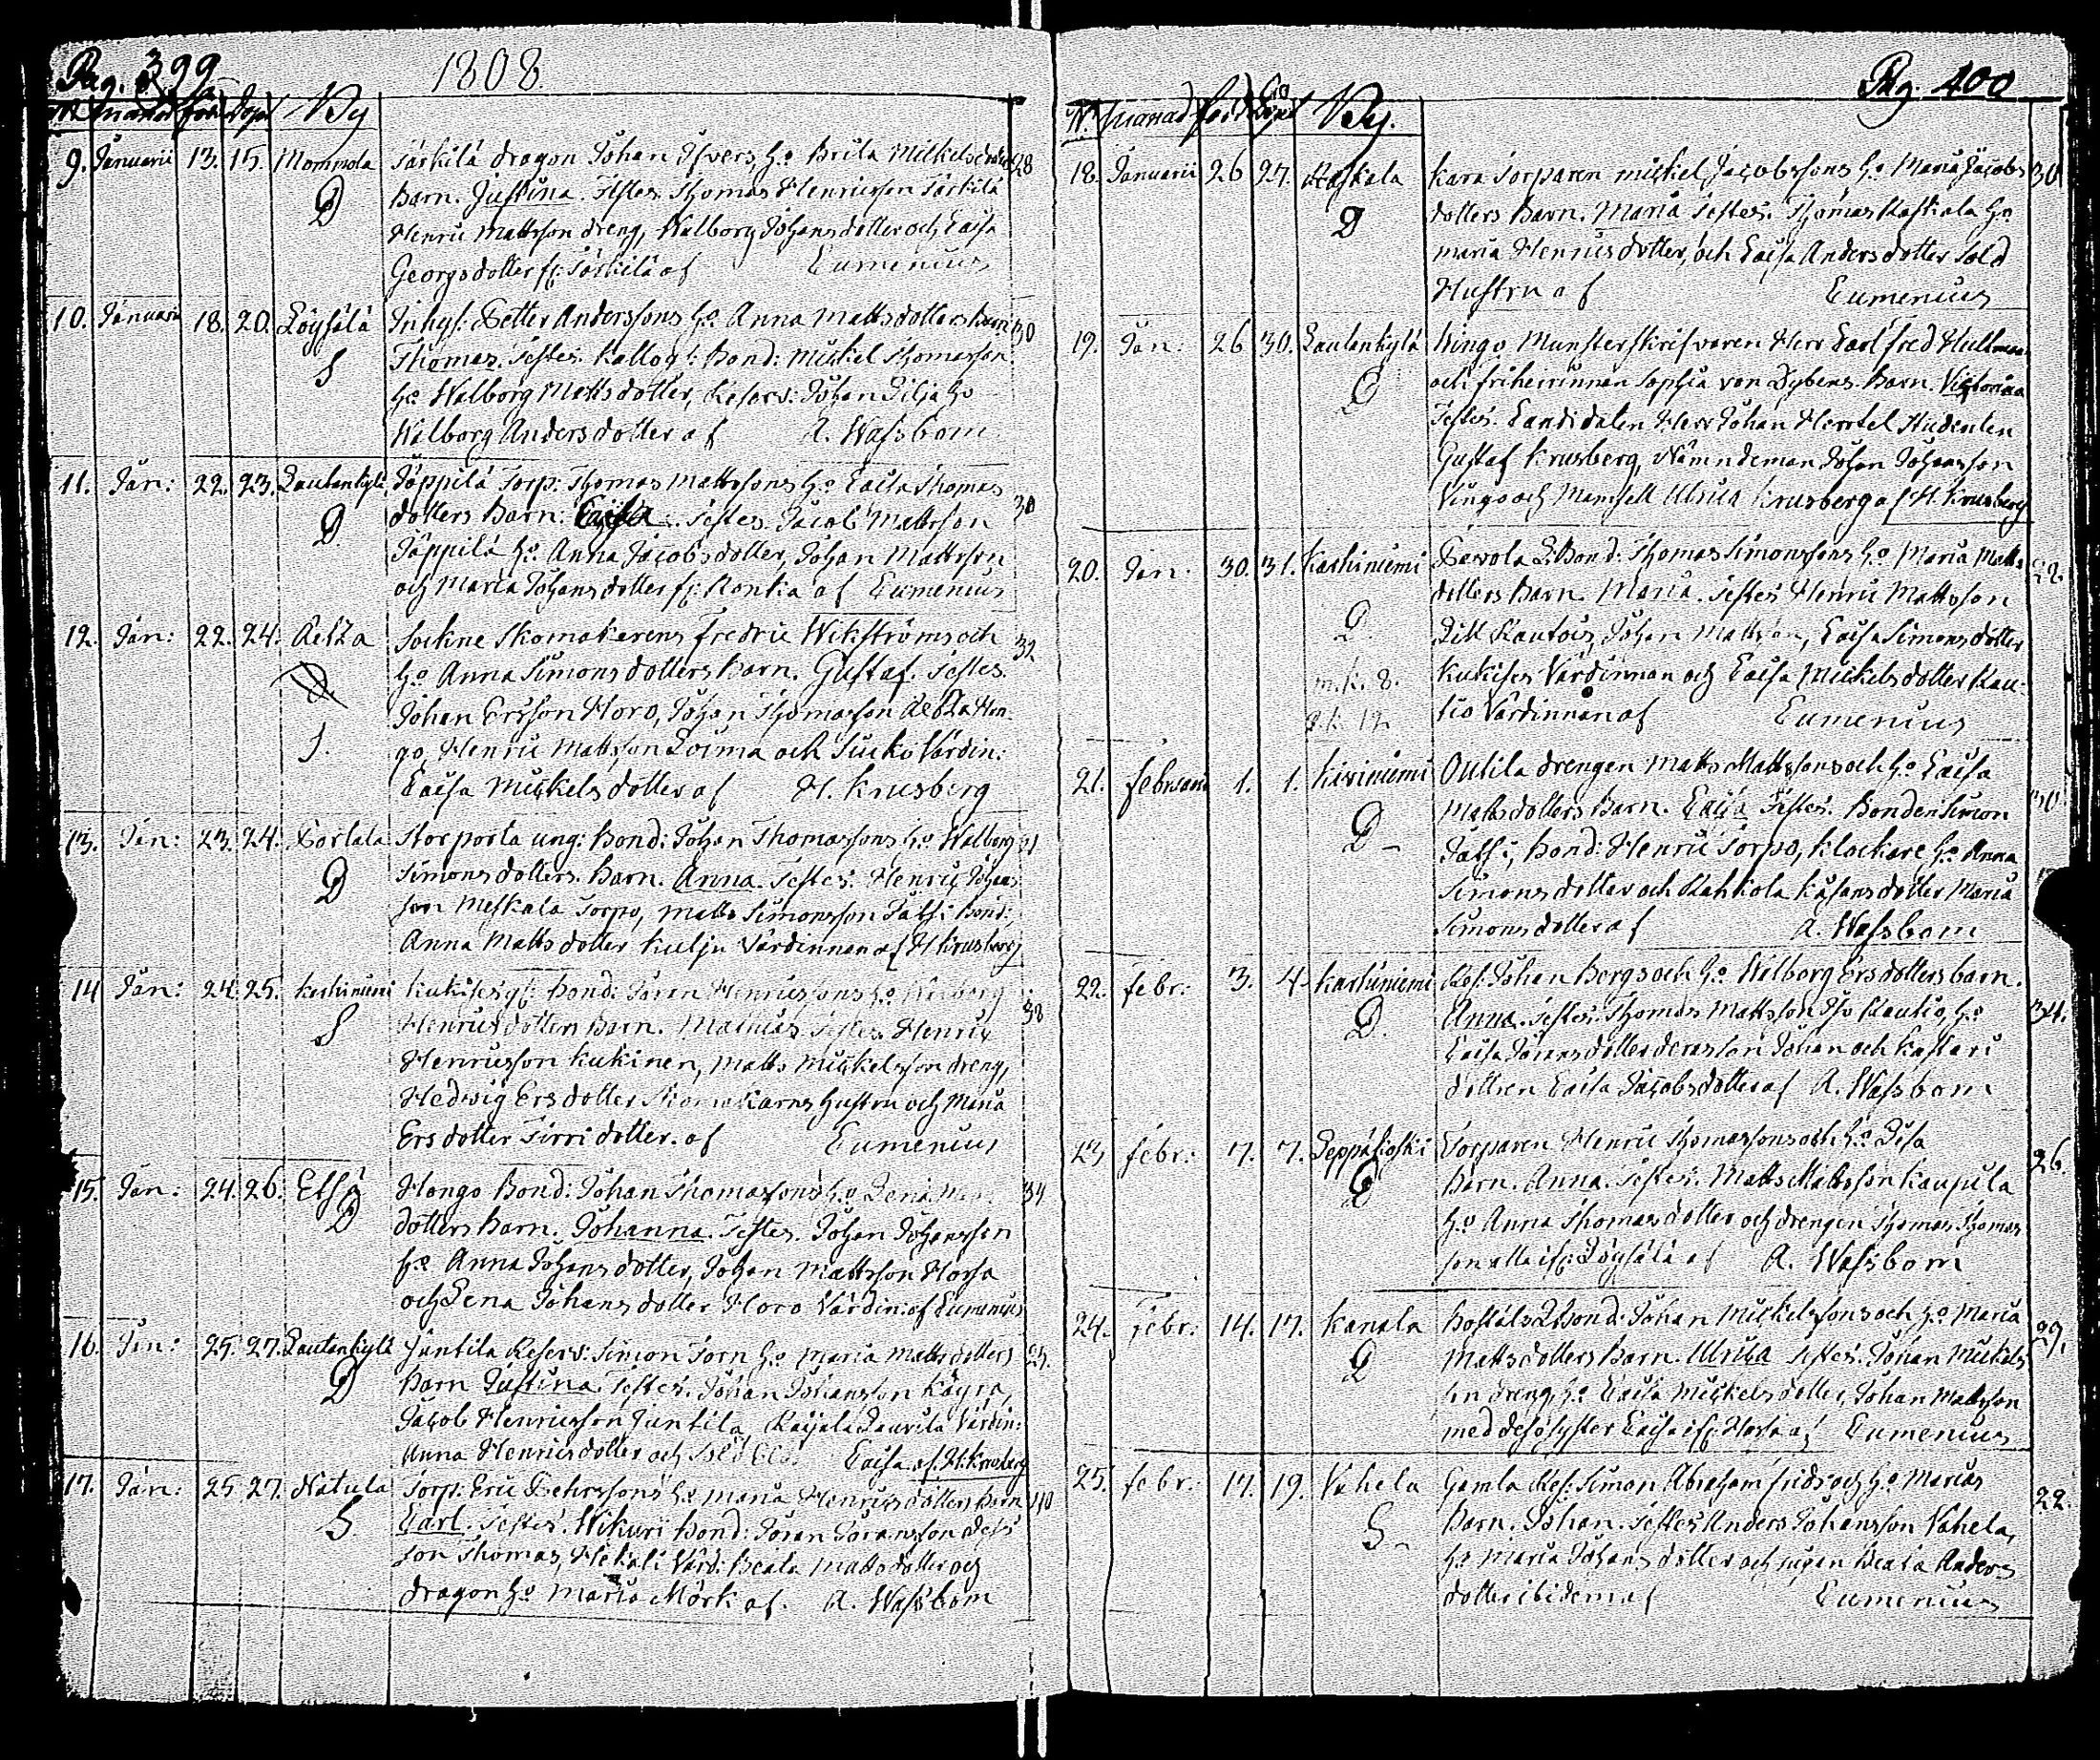 Pag. 399
1808.
Nr månad född döpt By
9. Januarii 13. 15. Mommola Särkilä dragon Johan Ifvers h:o Brita Mickelsdotters 28
D Barn. Justina. Testes. Thomas Henricsson Särkilä
Henric Mattsson dreng, Walborg Johansdotter och Caisa
Georgsdotter fr: Särkilä af Eumenius
10. Januarii 18. 20. Löysälä Inhys: Petter Anderssons h:o Anna Mattsdotters Barn 30
S Thomas. Testes. Bond: Mickel Thomasson
h:o Walborg Mattsdotter, Reserv: Johan Lilja h:o
Walborg Andersdotter af A. Wassbom
11. Jan: 22. 23. Lautenkylä Jäppilä Torp: Thomas Mattssons h:o Caisa Thomas
D dotters Barn. Caisa. Testes. Jacob Mattsson 30
Jäppilä h:o Anna Jacobsdotter, Johan Mattsson
och Maria Johansdotter fr: Ronka af Eumenius
12. Jan: 22. 24. Sockne Skomakerens Fredric Wikströms och 32
h:o Anna Simonsdotters Barn. Gustaf. Testes.
S. Johan Ersson Horo, Johan Thomasson
Henric Mattsson och Värdin:
Caisa Mickelsdotter af H. Krusberg
13. Jan: 23. 24. Sorkala Storporta ung: Bond: Johan Thomassons h:o Walborg
D Simonsdotters Barn. Anna. Testes. Henric Johans
son Meskala Torpo, Matts Simonsson Bond:
Anna Mattsdotter Kulju Värdinnan af H Krusberg
14 Jan: 24. 25. Karhiniemi Bond: Jöran Henricssons h:o Walborg
S Henricsdotters Barn. Mathias. Testes. Henric 38
Henricsson Kukinen, Matts Mickelsson dreng,
Hedwig Ersdotter Skomakarns hustru och Maria
Ersdotter Tirri dotter. af Eumenius
15. Jan: 24. 26. Hongo Bond: Johan Thomassons h:o Lena 34
D dotters Barn. Johanna. Testes. Johan Johansson
h:o Anna Johansdotter, Johan Mattsson
och Lena Johansdotter Horo Värdin: af Eumenius
16. Jan: 25. 27. Lautenkylä Juntila Reserv: Simon Torn h:o Maria Mattsdotters 25.
D Barn Justina. Testes. Johan Johansson Käyrä,
Jacob Henricsson Juntila, Laurila Värdin:
Anna Henricsdotter och Caisa af. H. Krusberg
17. Jan: 25. 27. Nätula Torp: Eric Pehrssons h:o Maria Henricsdotters Barn 40
S Carl. Testes. Wikuri Bond: Jöran Göransson dess
son Thomas, Heikali Värd: Beata Mattsdotter och
dragon h:o Maria Mörk af. A. Wassbom
Pag. 400
Nr månad född döpt By.
18. Januarii 26 27. Raskala Kara Torparen Mickel Jacobssons h:o Maria Jacobs 30
D dotters Barn. Maria Testes. Thomas Raskala h:o
Maria Henricsdotter, och Caisa Andersdotter Sold
Hustru af Eumenius
19. Jan: 26 30. Lautenkylä Hingo Munsterskrifvaren Herr Carl Fred Hullman
D och friherrinnan Sophia von Barn. Victorina
Testes. Candidaten Herr Johan Herrtel Studenten
Gustaf Krusberg, Nämndeman Johan Johansson
och Mamsell Ulrica Krusberg af H. Krusberg
20. Jan. 30. 31. Karhiniemi Bond: Thomas Simonssons h:o Maria Matts
D. dotters Barn. Maria. Testes Henric Mattsson
Johan Mattsson, Caisa Simonsdotter
m.k. 8. Värdinnan och Caisa Mickelsdotter Kau-
q.k. 12 tio Värdinnan af Eumenius
21. februarii 1. 1. Kiviniemi Outila drengen Matts Mattssons och h:o Caisa
D Mattsdotters Barn. Caisa Testes. Bonden Simon 30
Bond: Henric Torpo, Klockare h:o Anna
Simonsdotter och Maria
Simonsdotter af A. Wassbom
22. febr: 3. 4. Karhiniemi Res: Johan Bergs och h:o Walborg Ersdotters barn.
D. Anna. Testes. Thomas Mattsson Kautio, h:o 34.
Caisa Jöransdotter deras son Johan och
dottren Caisa Jacobsdotter af A. Wassbom
23 febr: 7. 7. Leppäkoski Torparen Henric Thomassons och h:o Lisa
D Barn. Anna. Testes. Matts Mattsson Kaupila 26.
h:o Anna Thomasdotter och drengen Thomas Thomas
son alla ifr: Löysälä af A. Wassbom
24. febr: 14. 17. Kanala Bond: Johan Mickelssons och h:o Maria 29.
D Mattsdotters Barn. Ulrica Testes. Johan Mickels
son dreng, h:o Caisa Mickelsdotter, Johan Mattsson
med dess syster Caisa ifr: af Eumenius
25. febr: 17. 19. Vahela Gamla Res: Simon Abraham frids och h:o Marias
S Barn. Johan. Testes Anders Johansson Vahela, 22.
h:o Maria Johansdotter och pigan Beata Anders
dotter ibidem af Eumenius